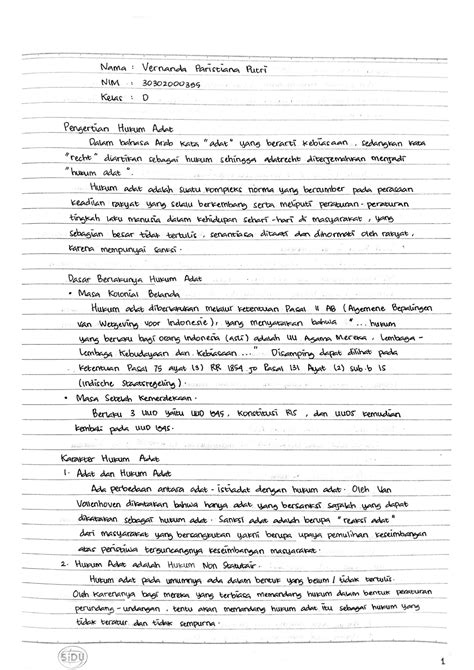 Nama : Vernanda Paristiana Putri
NIM : 30302000395
Kelas : D
Pengertian Hukum Adat
Dalam bahasa Arab kata "adat" yang berarti kebiasaan, sedangkan kata
"recht" diartikan sebagai hukum sehingga adatrecht diterjemahkan menjadi
"hukum adat".
Hukum adat adalah suatu kompleks norma yang bersumber pada perasaan
keadilan rakyat yang selalu berkembang serta meliputi peraturan-peraturan
tingkah laku manusia dalam kehidupan sehari-hari di masyarakat, yang
sebagian besar tidak tertulis, senantiasa ditaati dan dihormati oleh rakyat,
karena mempunyai sanksi.
Dasar Berlakunya Hukum Adat
• Masa Kolonial Belanda
Hukum adat diberlakukan melalui ketentuan Pasal 11 AB (Algemene Bepalingen
van Wetgeving voor Indonesie), yang menyatakan bahwa "... hukum
yang berlaku bagi orang Indonesia (asli) adalah UU Agama Mereka, Lembaga-
Lembaga Kebudayaan dan Kebiasaan ..." Disamping dapat dilihat pada
ketentuan Pasal 75 ayat (3) RR 1854 jo Pasal 131 Ayat (2) sub.b IS
(Indische Staatsregeling).
• Masa Setelah Kemerdekaan.
Berlaku 3 UUD yaitu UUD 1945, Konstitusi RIS, dan UUDS kemudian
kembali pada UUD 1945.
Karakter Hukum Adat
1. Adat dan Hukum Adat
Ada perbedaan antara adat-istiadat dengan hukum adat. Oleh Van
Vollenhoven dikatakan bahwa hanya adat yang bersanksi sajalah yang dapat
dikatakan sebagai hukum adat. Sanksi adat adalah berupa "reaksi adat"
dari masyarakat yang bersangkutan yakni berupa upaya pemulihan keseimbangan
atas peristiwa terguncangnya keseimbangan masyarakat.
2. Hukum Adat adalah Hukum Non Statutair.
Hukum adat pada umumnya ada dalam bentuk yang belum / tidak tertulis.
Oleh karenanya bagi mereka yang terbiasa memandang hukum dalam bentuk peraturan
perundang-undangan, tentu akan memandang hukum adat itu sebagai hukum yang
tidak teratur dan tidak sempurna.
SiDU
1